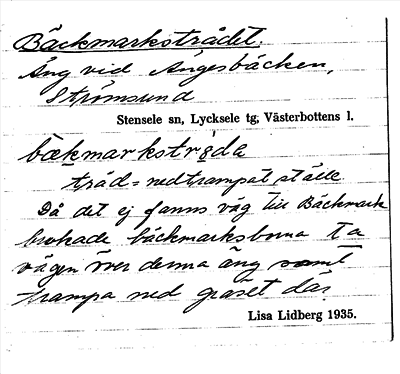 Bäckmarkstrådet.
Äng vid Ångesbäcken,
Strömsund
Stensele sn, Lycksele tg, Västerbottens l.
bækmarkstrǫdɛ
tråd = nedtrampat ställe
Då det ej fanns väg till Bäckmark
brukade bäckmarksborna ta
vägen över denna äng samt
trampa ned gräset där.
Lisa Lidberg 1935.